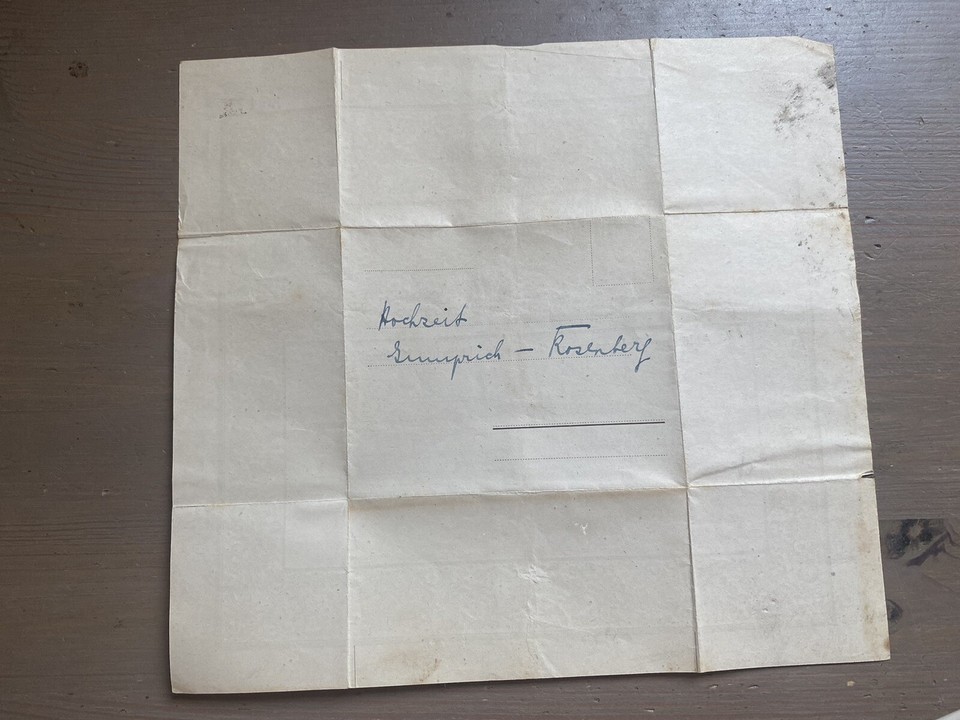 Hochzeit
Gumprich – Rosenberg